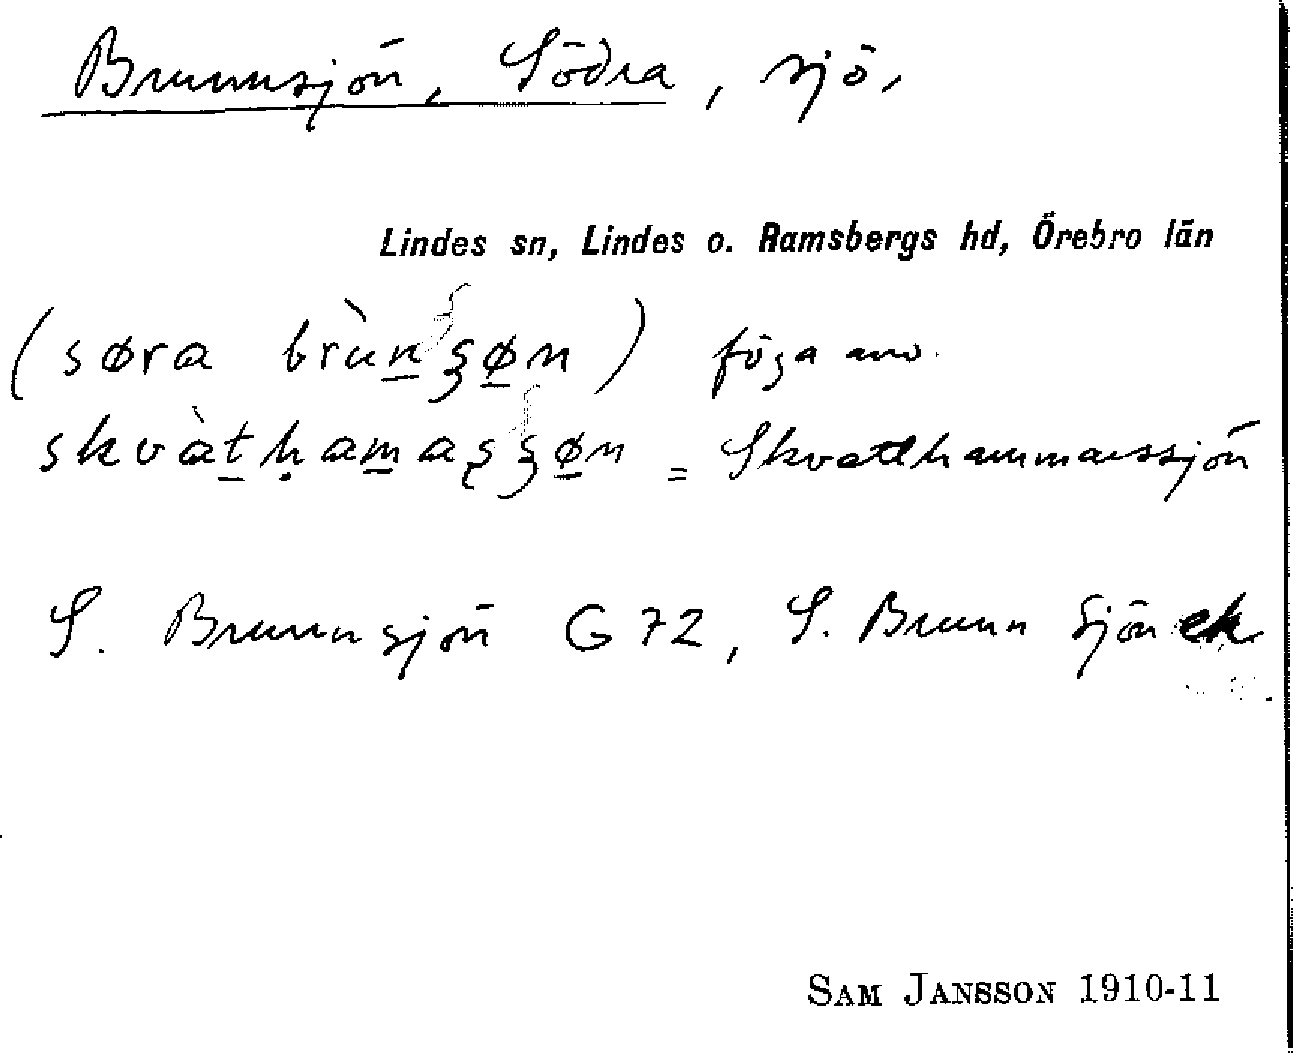 Brunnsjön, Södra, sjö,
Lindes sn, Lindes o. Ramsbergs hd, Örebro län
(søra brùn̲ʒø̲n) föga anv.
skvàt̲ḥam̲aʂʒø̲n = Skvatthammarssjön
S. Brunnsjön G 72, S. Brunn Sjön ek
SAM JANSSON 1910-11